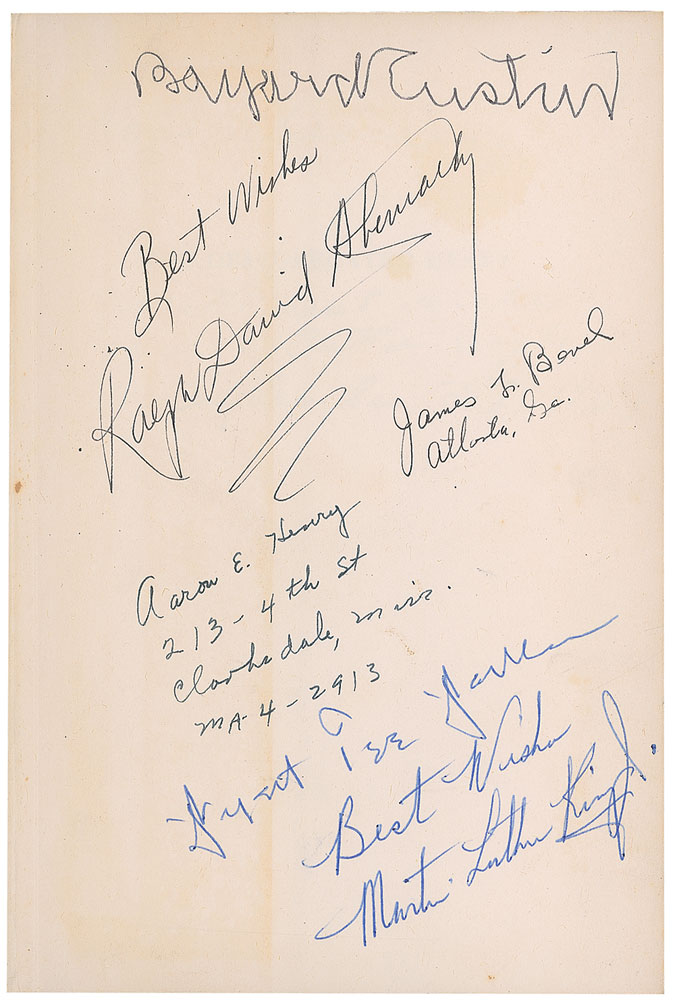 Bayard Rustin
Best Wishes
Ralph David Abernathy
James L. Bevel
Atlanta, Ga.
Aaron E. Henry
213-4th St
Clarksdale, Miss.
MA-4-2913
Wyatt Tee Walker
Best Wishes
Martin Luther King Jr.